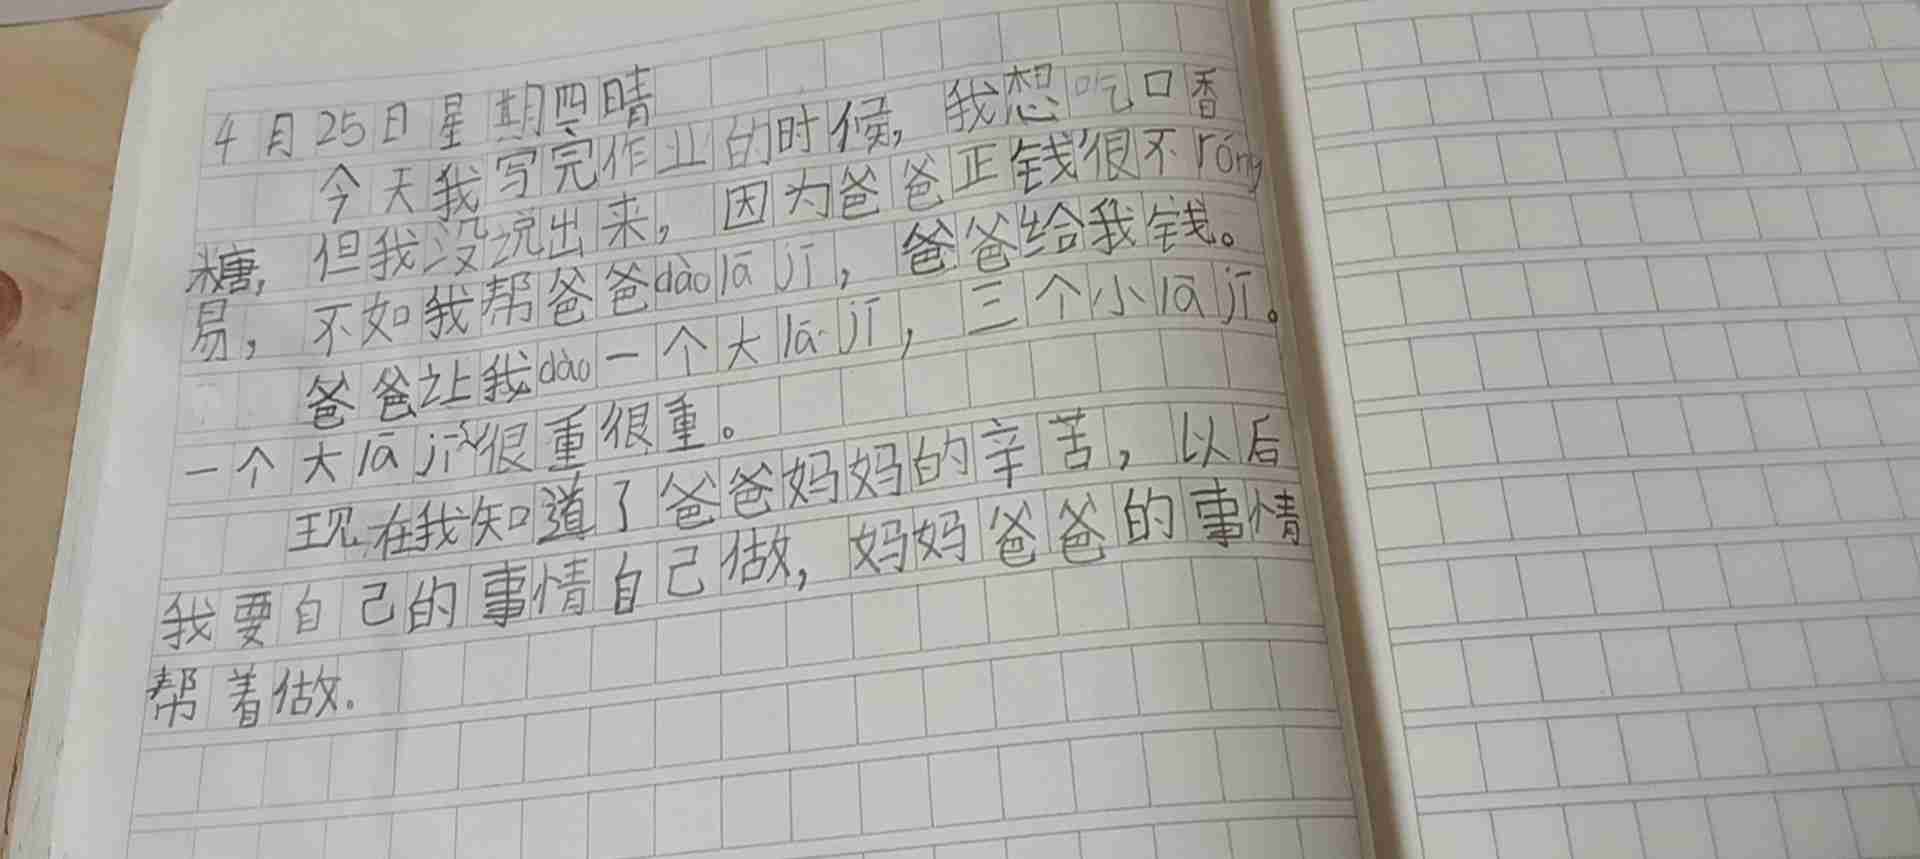 4月25日星期四晴
今天我写完作业的时候,我想吃口香
糖,但我没说出来,因为爸爸正钱很不róng
易,不如我帮爸爸dào lā jī,爸爸给我钱。
爸爸让我dào一个大lā jī,三个小lā jī。
一个大lā jī很重很重。
现在我知道了爸爸妈妈的辛苦,以后
我要自己的事情自己做,妈妈爸爸的事情
帮着做.